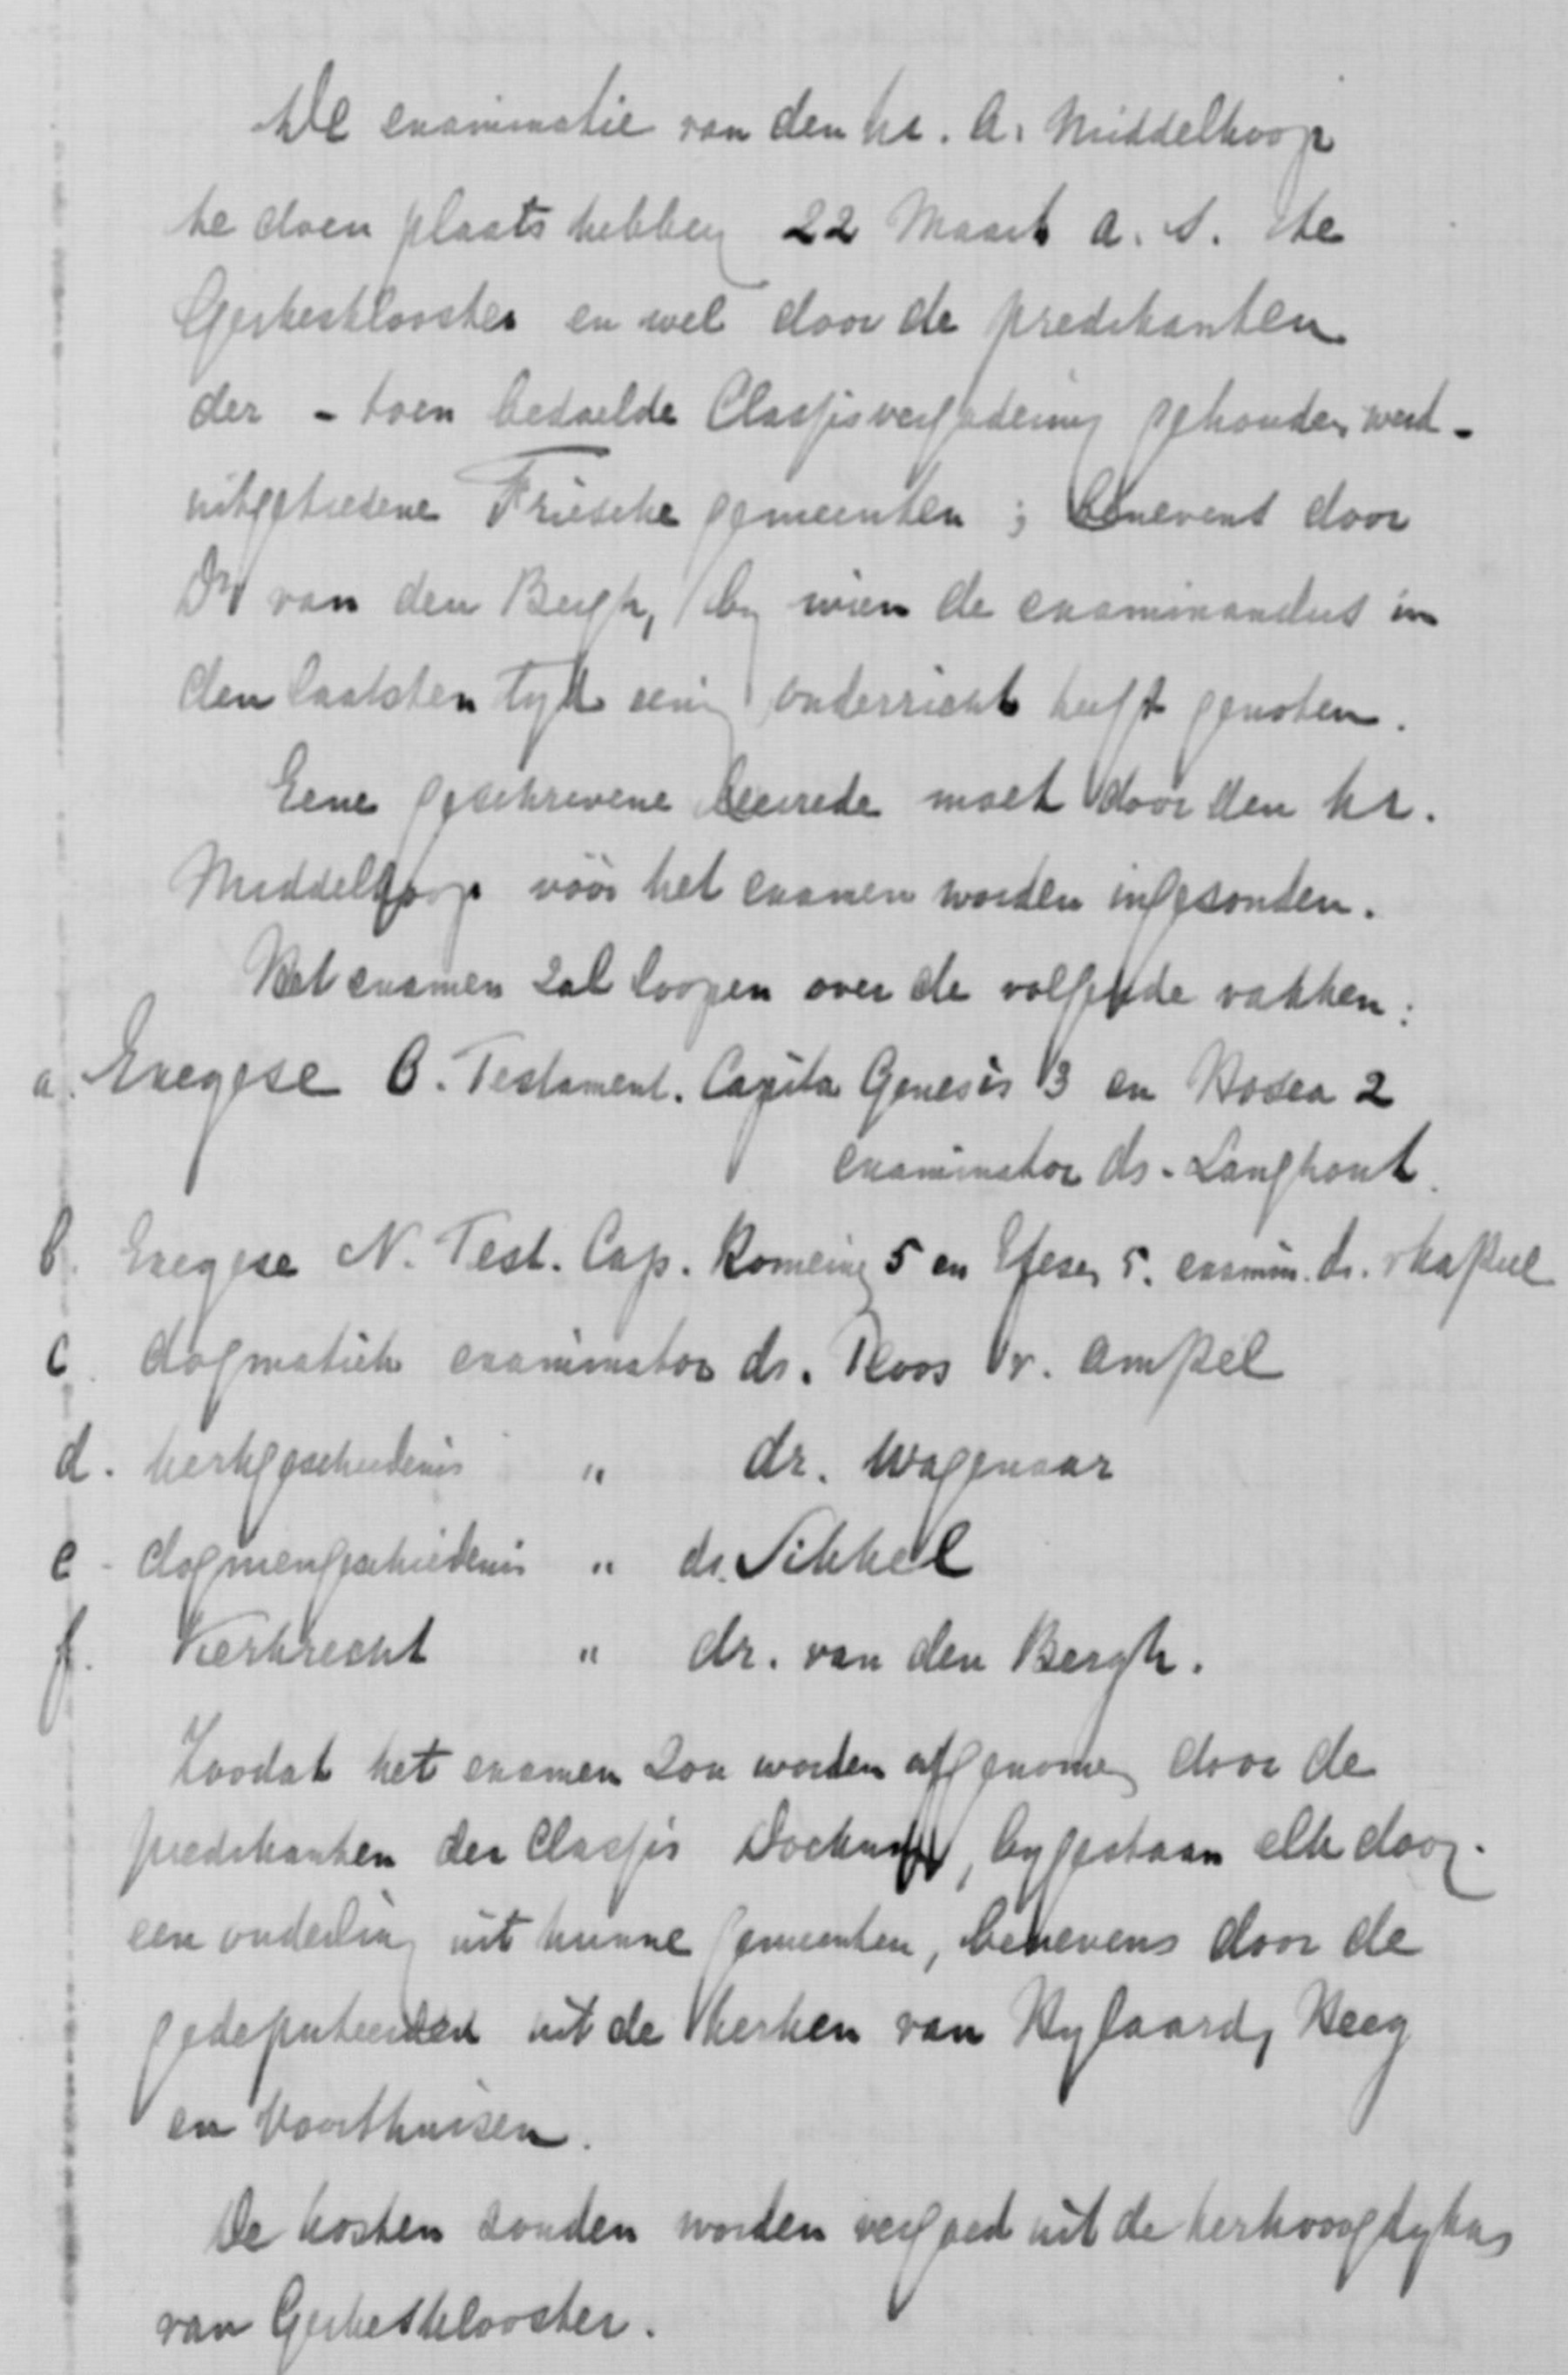 De examinatie van den hr. A. Middelkoop
te doen plaats hebben 22 Maart a. s. te
Gerkesklooster en wel door de predikanten
der - toen bedoelde Classisvergadering gehouden werd -
uitgetredene Friesche gemeenten; benevens door
Dr van den Bergh, by wien de examinandus in
den laatsten tyd eenig onderricht heeft genoten.
Eene geschrevene leerrede moet door den hr.
Middelkoop vóór het examen worden ingezonden.
Het examen zal loopen over de volgende vakken:
a. Exegese O. Testament. Capita Genesis 3 en Hosea 2
examinator ds. Langhout.
b. Exegese N. Test. Cap. Romeinen 5 en Efeser 5. examin. ds. v Kasteel
c. dogmatiek examinator ds. Ploos v. Amstel
d. kerkgeschiedenis " dr. Wagenaar
e. dogmengeschiedenis " ds. Sikkel
f. Kerkrecht " dr. van den Bergh.
Zoodat het examen zou worden afgenomen door de
predikanten der Classis Dockum, bygestaan elk door
een ouderling uit hunne gemeenten, benevens door de
gedeputeerden uit de kerken van Hylaard, Heeg
en Voorthuizen.
De kosten zouden worden vergoed uit de kerkvoogdykas
van Gerkesklooster.